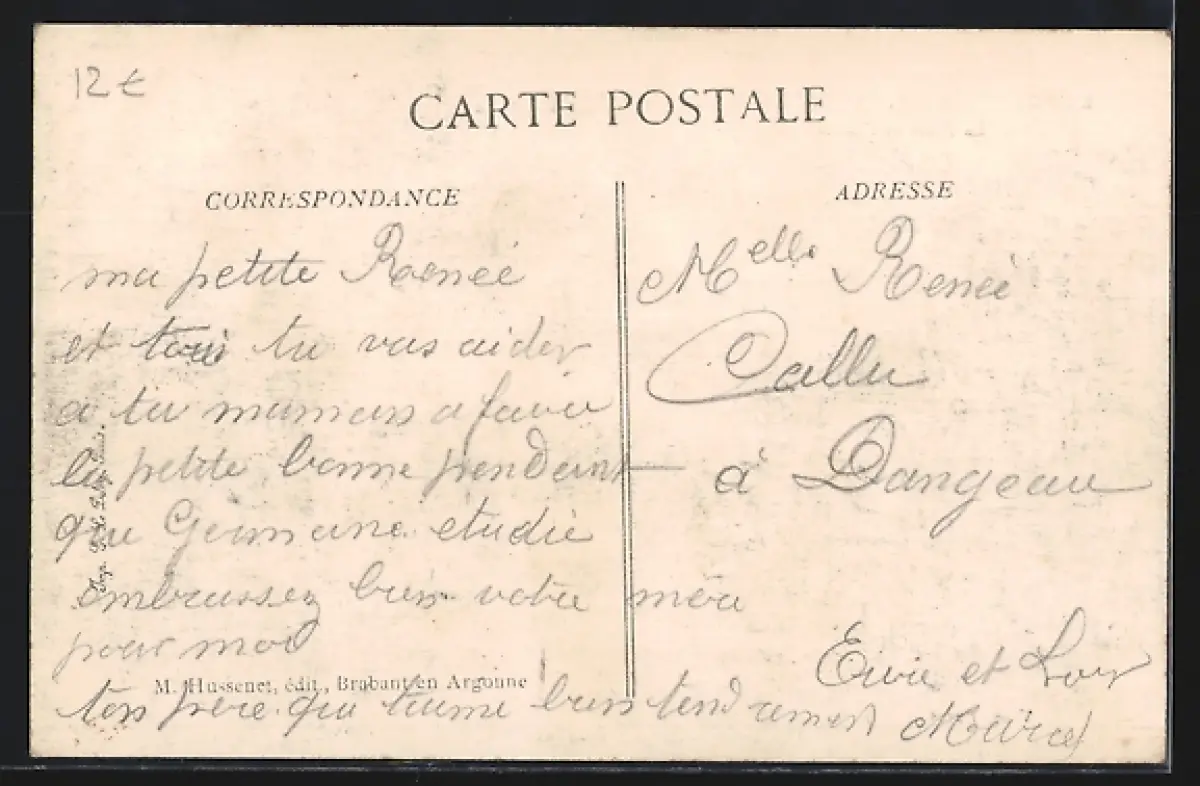 12 €
CARTE POSTALE
CORRESPONDANCE
ma petite Renée
et toi tu vas aider
a ta maman a faire
la petite bonne pendant
que Germaine étudie
embrassez bien votre mère
pour moi
ton père qui t'aime bien tendrement Marcel
M. Hussenet, édit., Brabant en Argonne
Imp.
ADRESSE
Melle Renée
Callu
à Dangeau
Eure et Loir